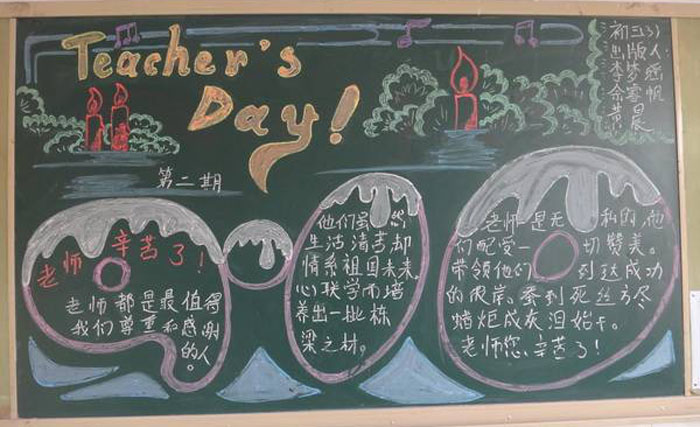 Teacher's
Day!
初三(3)
出版人
第二期
老师 辛苦了！
老师都是最值得
我们尊重和感谢
的人。
他们虽然
生活清苦却
情系祖国未来
心联学而培
养出一批栋
梁之材。
老师是无私的，他
们配受一切赞美。
带领他们到达成功
的彼岸。春到死丝方尽
蜡炬成灰泪始干。
老师您，辛苦了！